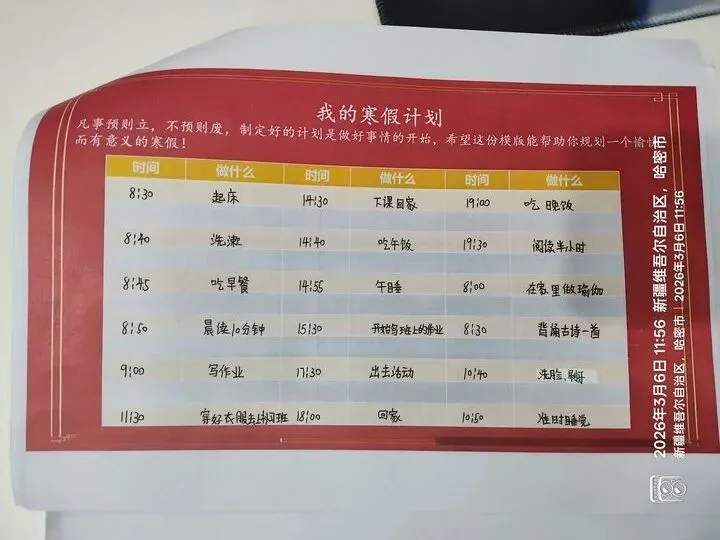 我的寒假计划
凡事预则立，不预则废，制定好的计划是做好事情的开始，希望这份模版能帮助你规划一个愉快
而有意义的寒假！
时间 做什么 时间 做什么 时间 做什么
8:30 起床 14:30 下课回家 19:00 吃晚饭
8:40 洗漱 14:40 吃午饭 19:30 阅读半小时
8:45 吃早餐 14:55 午睡 8:00 在家里做瑜伽
8:50 晨读10分钟 15:30 开始写班上的作业 8:30 背诵古诗一首
9:00 写作业 17:30 出去活动 10:40 洗脸、刷牙
11:30 穿好衣服去上补习班 18:00 回家 10:50 准时睡觉
2026年3月6日 11:56 新疆维吾尔自治区，哈密市
新疆维吾尔自治区，哈密市 | 2026年3月6日 11:56